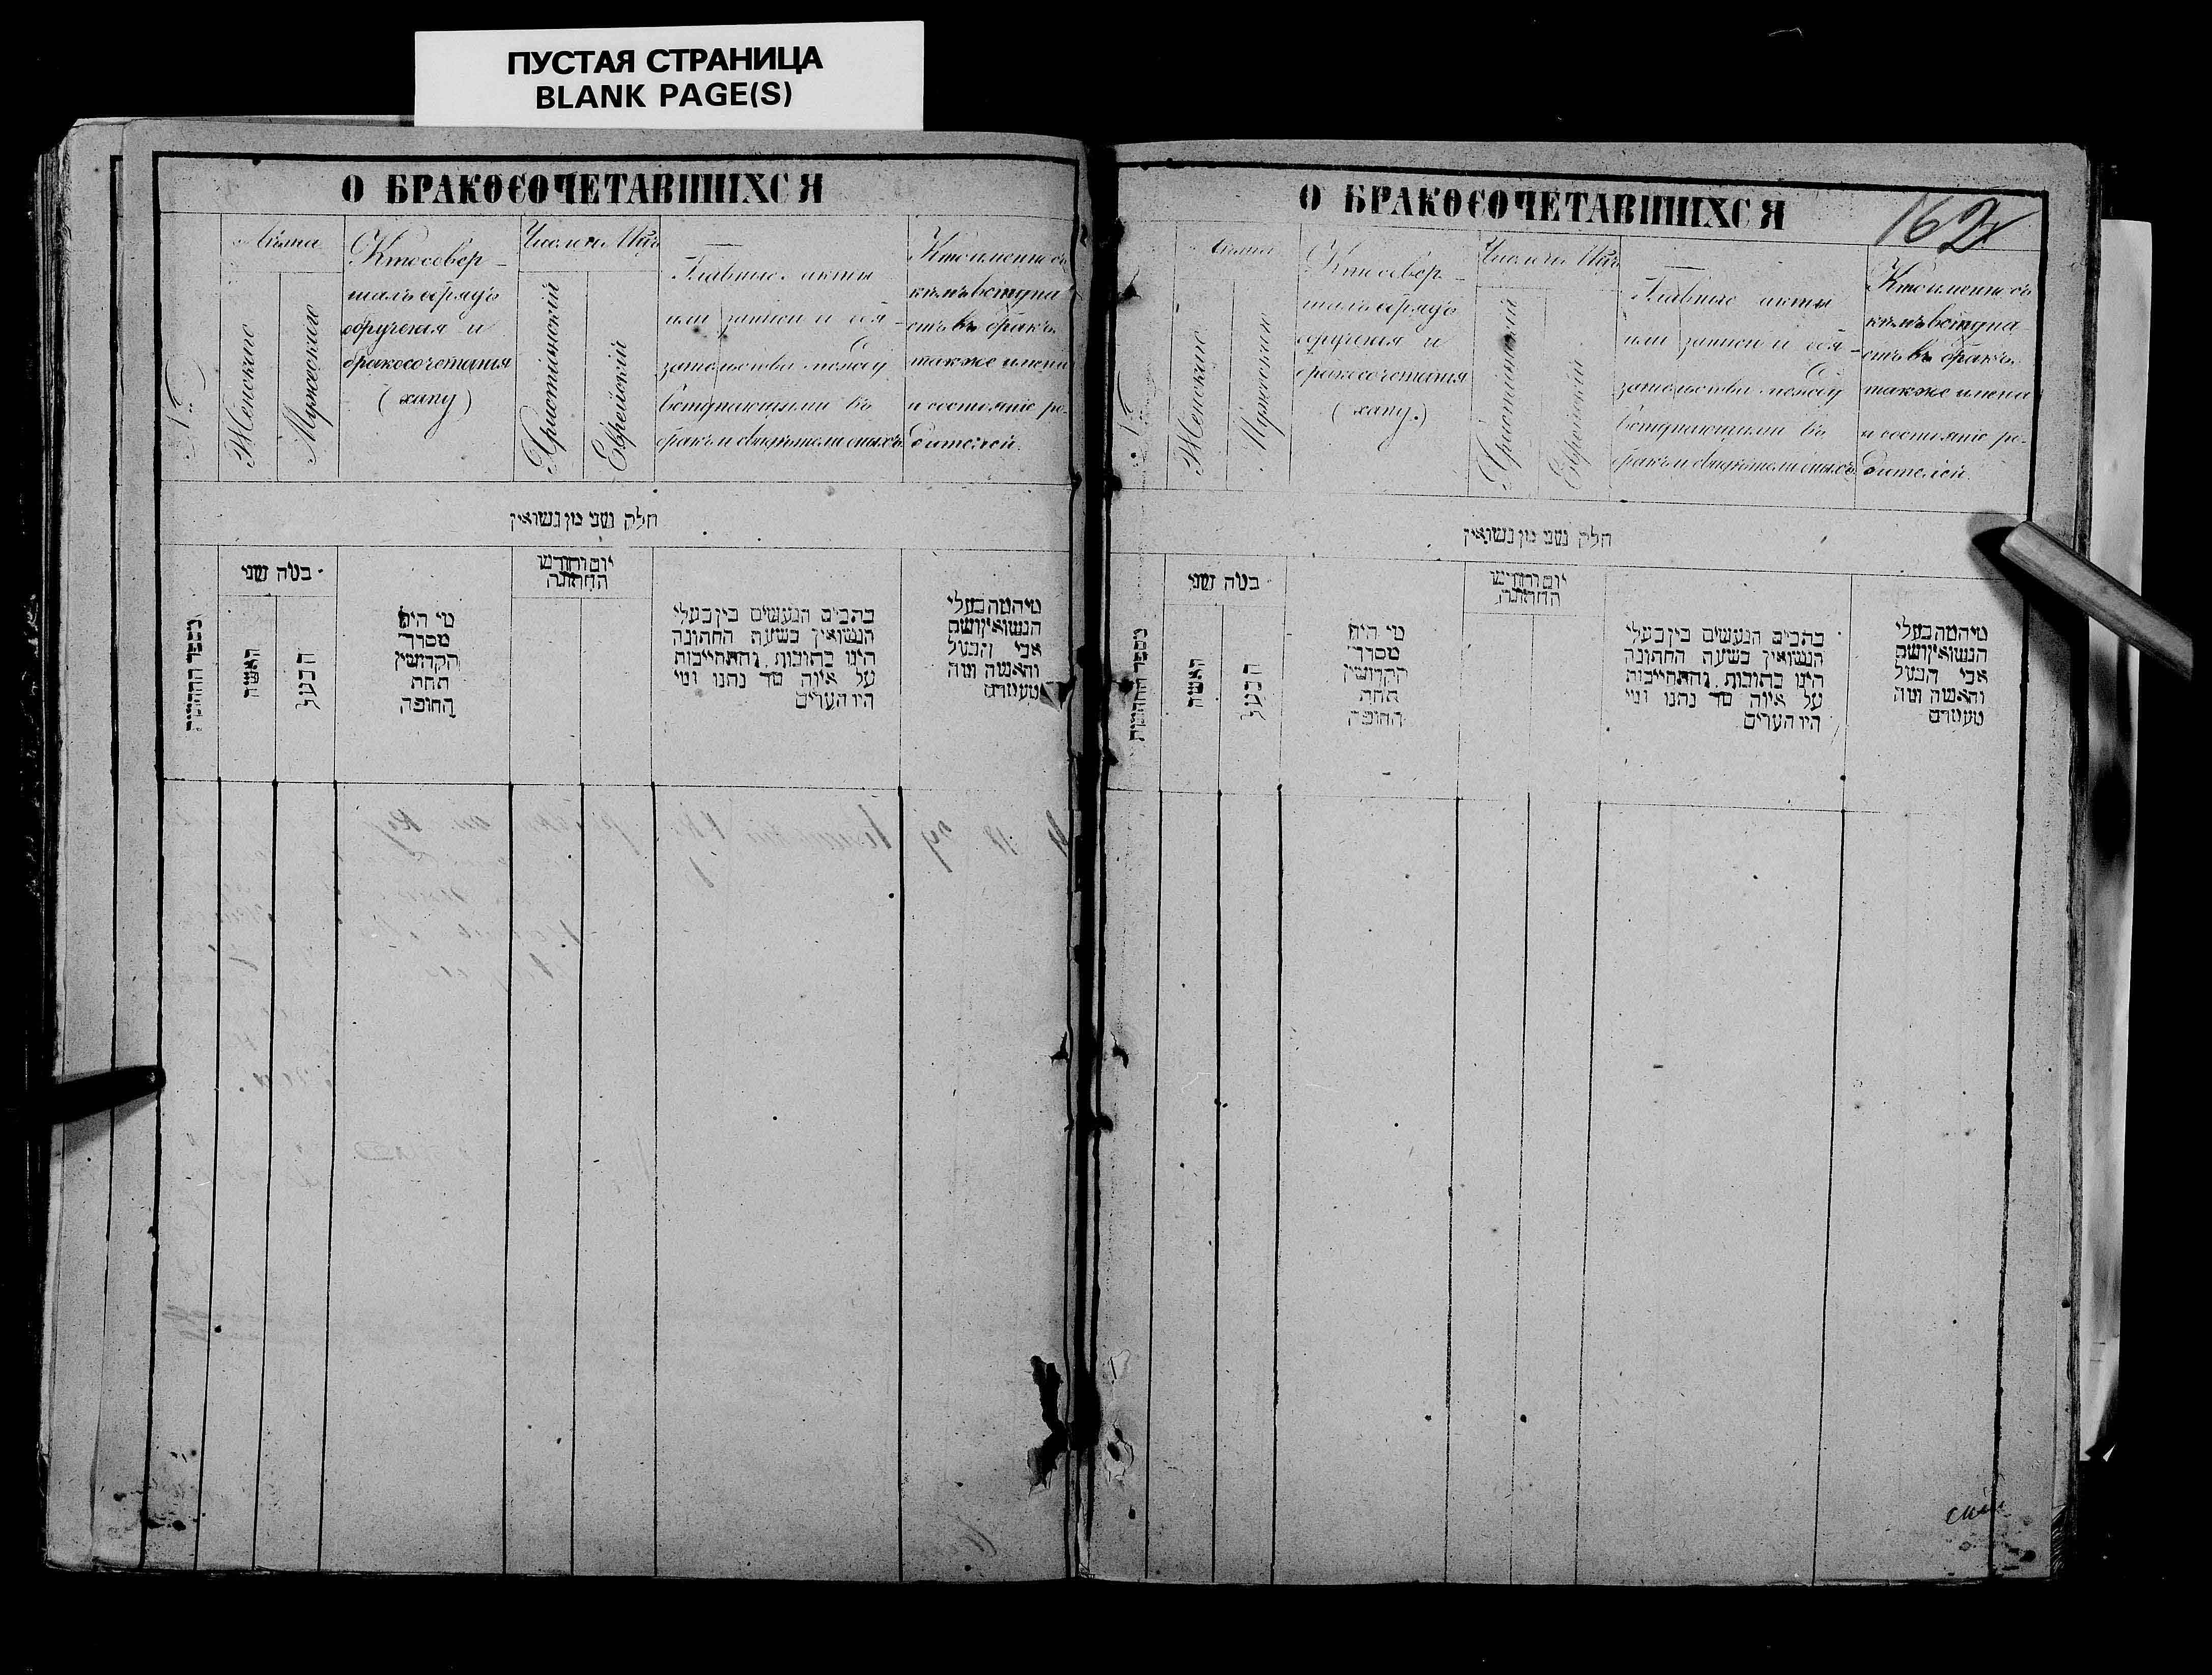 ПУСТАЯ СТРАНИЦА
BLANK PAGE(S)
О БРАКОСОЧЕТАВШИХСЯ
№
Лѣта
Женскаго
Мужескаго
Кто совер-
шалъ обрядъ
обрученія и
бракосочетанія
(хупу)
Число и Мѣс.
Христіянскій
Еврейскій
Главные акты
или записи и обя-
зательства между
вступающими въ
бракъ и свидѣтели оныхъ
Кто именно съ
кѣмъ вступа
етъ въ бракъ
также имена
и состояніе ро-
дителей.
חלק שני מן נשואין
מספר החתונות
כמה שני
האשה
הבעל
מי היה
מסדר
הקדושין
תחת
החופה
יום וחודש
החתונה
כתבים הנעשים בין בעלי
הנשואין בשעת החתונה
היינו כתובות והתחייבות
על איזה סך נתנו ומי
היו העדים
מי המה בעלי
הנשואין ושם
אבי הבעל
והאשה ומה
מעמדם
О БРАКОСОЧЕТАВШИХСЯ
162
№
Лѣта
Женскаго
Мужескаго
Кто совер-
шалъ обрядъ
обрученія и
бракосочетанія
(хупу.)
Число и Мѣс.
Христіянскій
Еврейскій
Главные акты
или записи и обя-
зательства между
вступающими въ
бракъ и свидѣтели оныхъ
Кто именно съ
кѣмъ вступа
етъ въ бракъ
также имена
и состояніе ро-
дителей.
חלק שני מן נשואין
מספר החתונות
כמה שני
האשה
הבעל
מי היה
מסדר
הקדושין
תחת
החופה
יום וחודש
החתונה
כתבים הנעשים בין בעלי
הנשואין בשעת החתונה
היינו כתובות והתחייבות
על איזה סך נתנו ומי
היו העדים
מי המה בעלי
הנשואין ושם
אבי הבעל
והאשה ומה
מעמדם